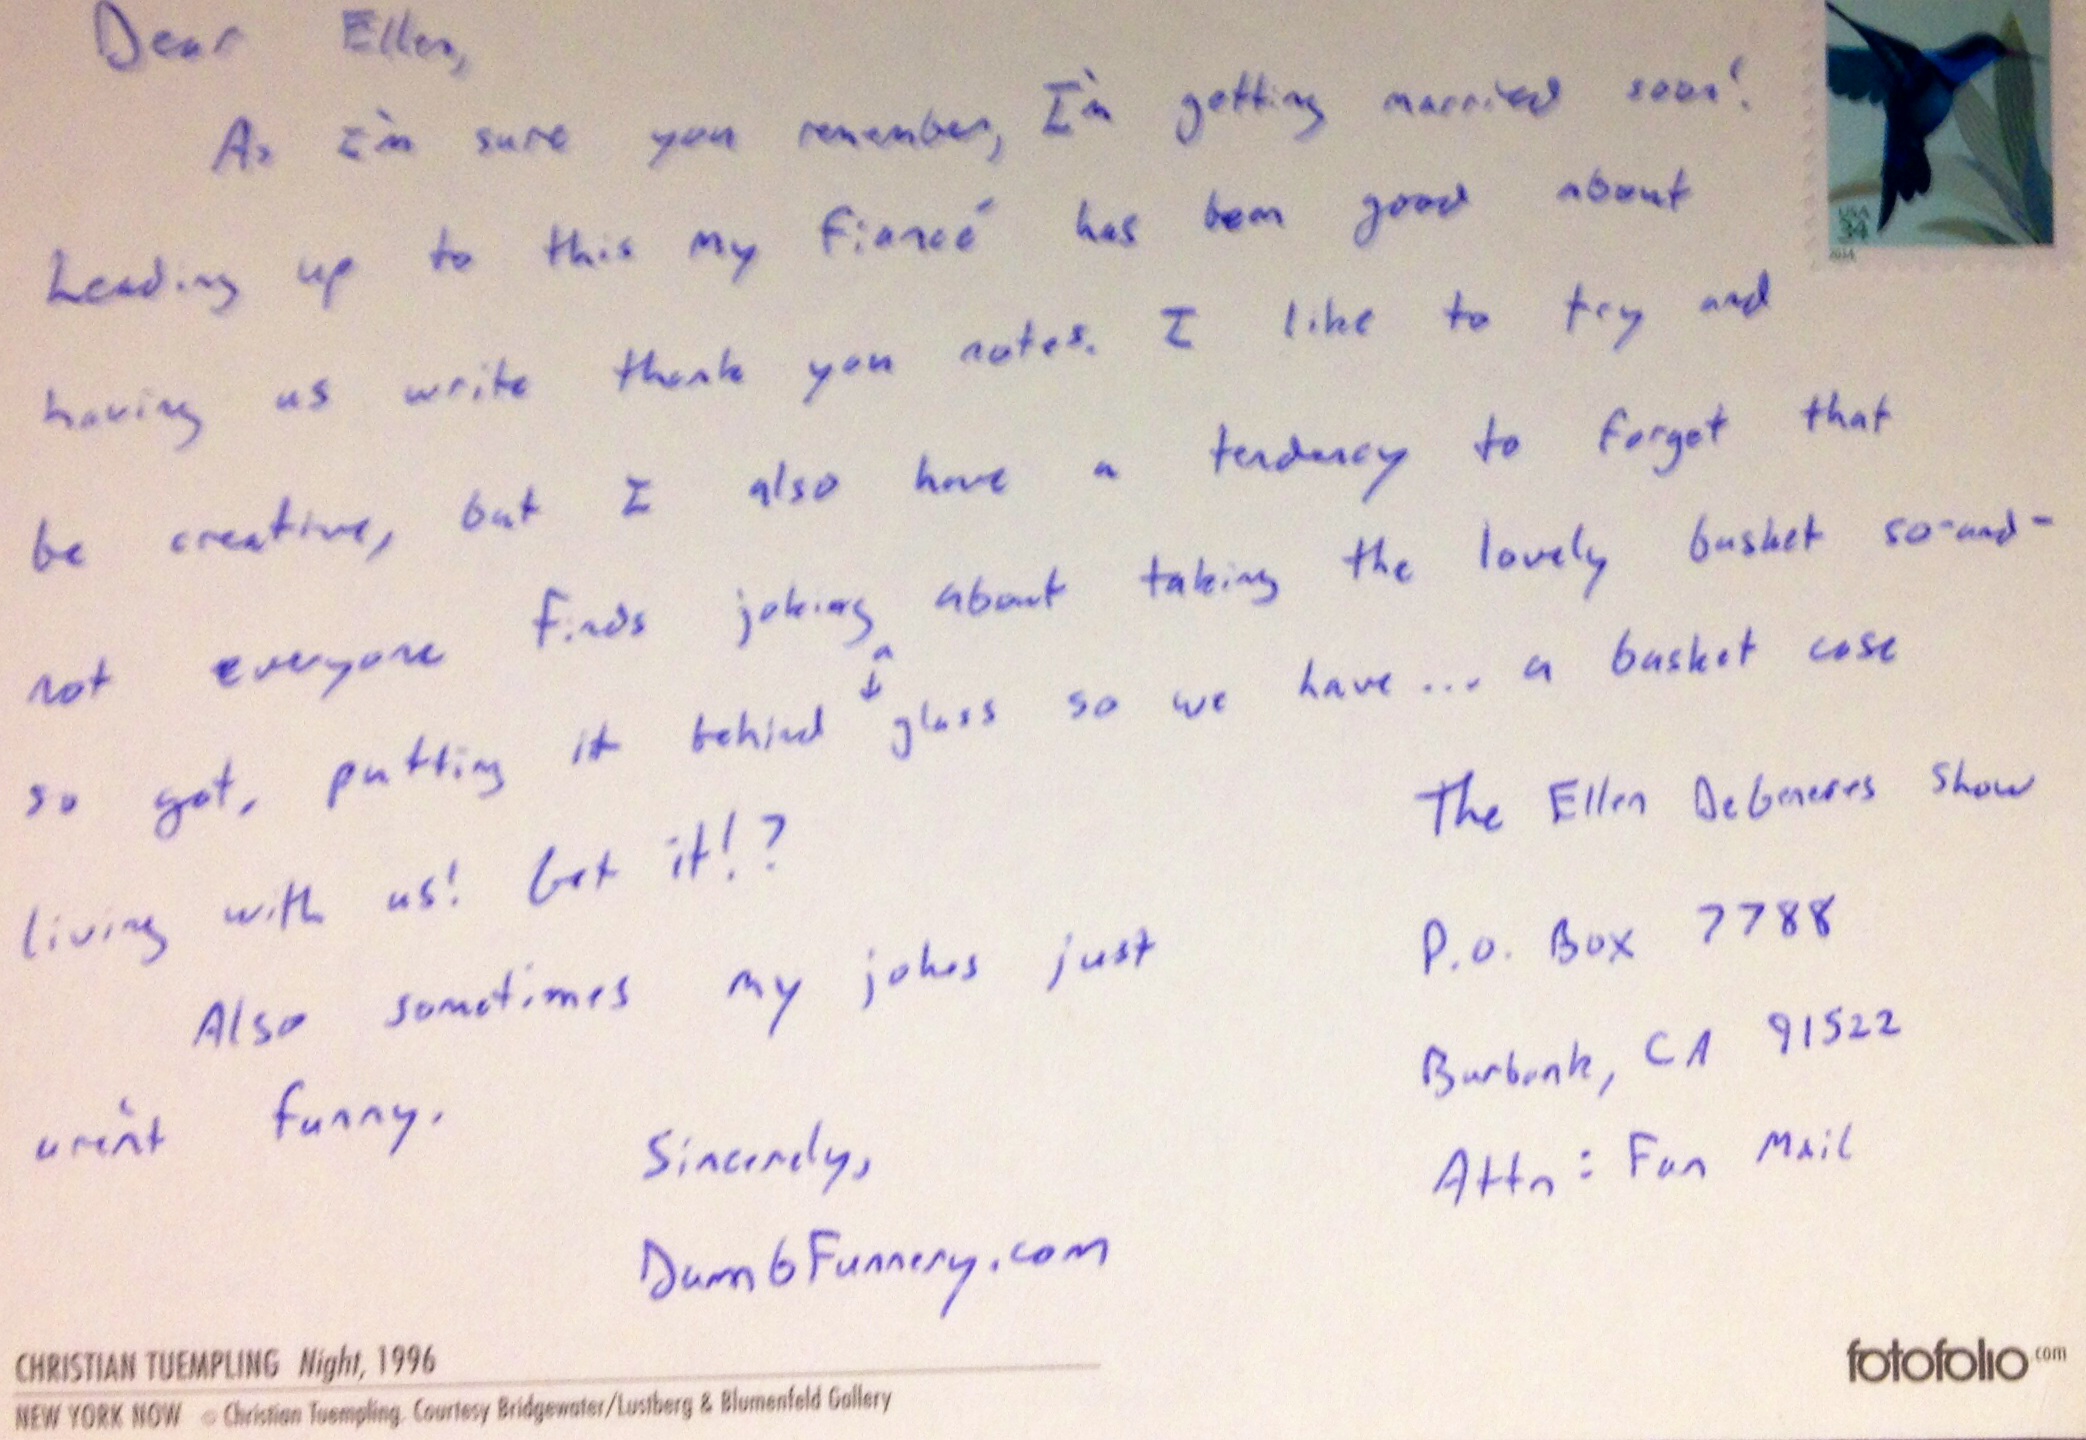 Dear Ellen,
As I'm sure you remember, I'm getting married soon!
Leading up to this my fiancé has been good about
having us write thank you notes. I like to try and
be creative, but I also have a tendency to forget that
not everyone finds joking about taking the lovely basket so-and-
so got, putting it behind glass so we have... a basket case
living with us! Get it!?
Also sometimes my jokes just
aren't funny.
Sincerely,
DumbFunnery.com
The Ellen DeGeneres Show
P.O. Box 7788
Burbank, CA 91522
Attn: Fan Mail
USA
34
2014
CHRISTIAN TUEMPLING Night, 1996
NEW YORK NOW © Christian Tuempling. Courtesy Bridgewater/Lustberg & Blumenfeld Gallery
fotofolio.com